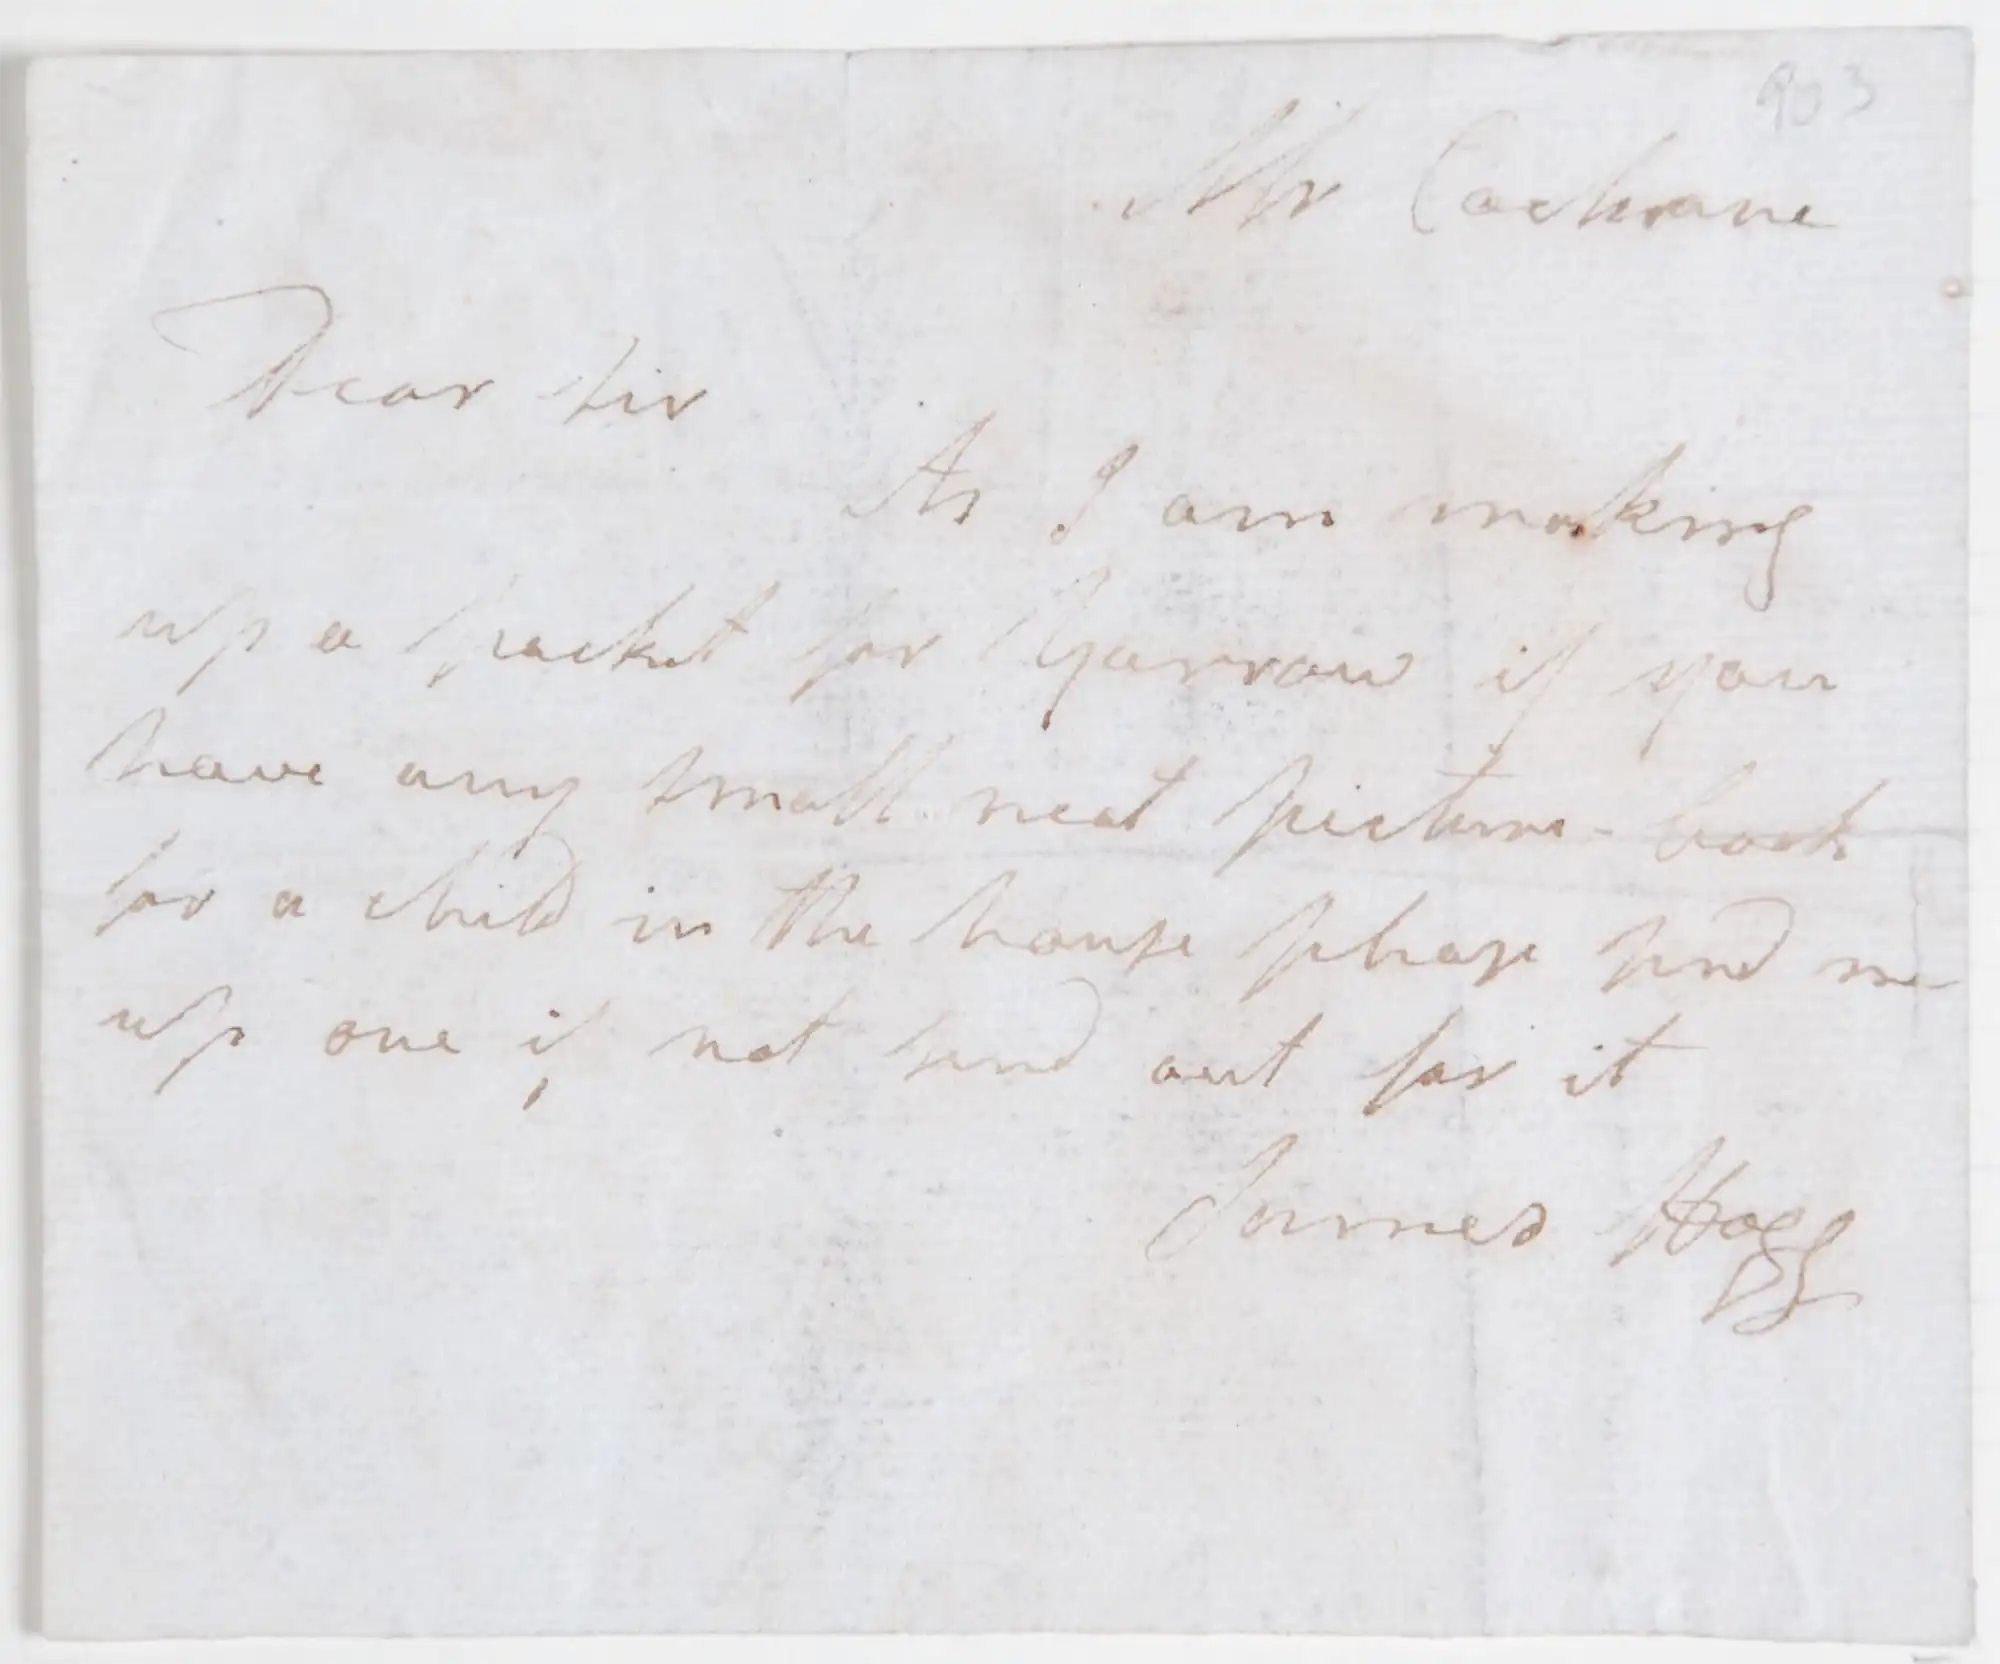 903
Mr Cochrane
Dear Sir
As I am making
up a packet for Yarrow if you
have any small neat picture-book
for a child in the house please send me
up one if not send out for it
James Hogg